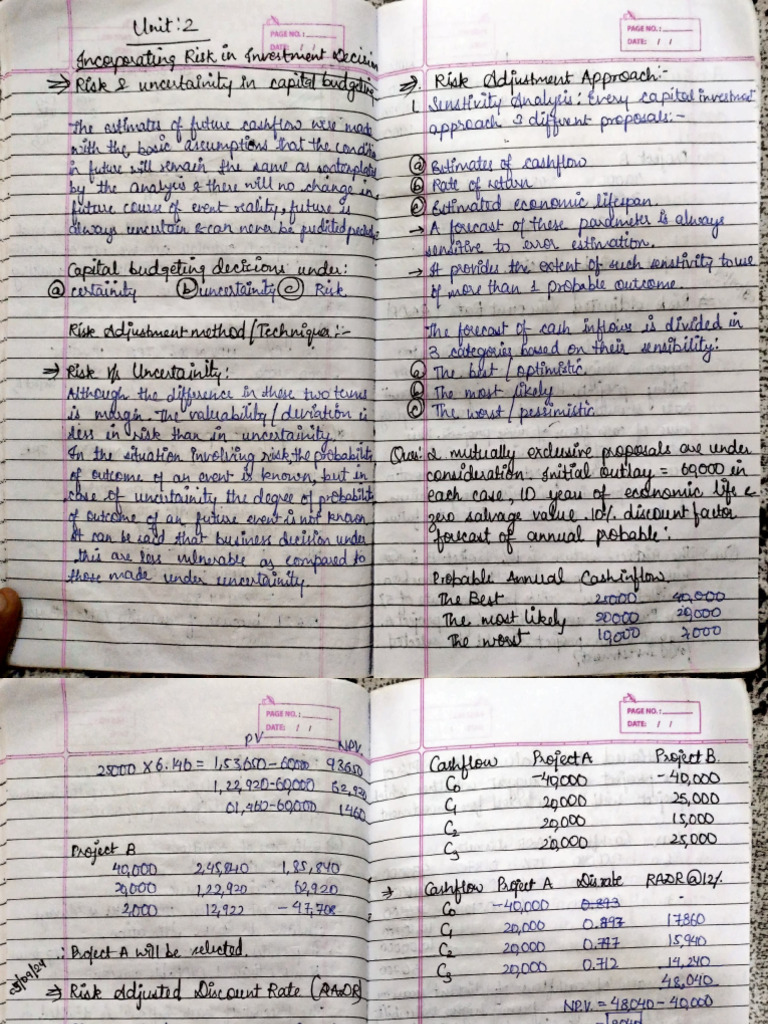 Unit:2
PAGE NO.:
DATE: / /
Incorporating Risk in Investment Decision
⇒ Risk & uncertainity in capital budgeting
The estimates of future cashflow were made
with the basic assumptions that the condition
in future will remain the same as
by the analysis & there will no change in
future course of event reality, future is
always uncertain & can never be
Capital budgeting decisions under:
(a) certainity (b) uncertainity (c) Risk
Risk Adjustment method/Techniques:-
⇒ Risk v/s Uncertainity:
Although the difference in these two terms
is margin. The valuability/deviation is
less in risk than in uncertainity.
In the situation involving risk, the probability
of outcome of an event is known, but in
case of uncertainity the degree of probability
of outcome of an future event is not known
It can be said that business decision under
this are less vulnerable as compared to
those made under uncertainity.
PAGE NO.:
DATE: / /
⇒ Risk Adjustment Approach:-
1. Senstivity Analysis: Every capital investment
approach 3 diffrent proposals:-
(a) Estimates of cashflow
(b) Rate of return
(c) Estimated economic lifespan.
→ A forecast of these parameter is always
sensitive to error estimation.
→ It provides the extent of such senstivity to use
of more than 1 probable outcome.
The forecast of cash inflows is divided in
3 categories based on their sensibility:
(a) The best/optimistic
(b) The most likely
(c) The worst/pessimistic
Ques: 2 mutually exclusive proposals are under
consideration. Initial outlay = 60,000 in
each case, 10 years of economic life &
zero salvage value. 10% discount factor
forecast of annual probable:
Probable Annual Cashinflow.
The Best 25000 40,000
The most likely 20000 20,000
The worst 10,000 2000
PAGE NO.:
DATE: / /
PV NPV.
25000 x 6.146 = 1,53650-60000 93650
1,22,920-60,000 62,920
61,460-60,000 1460
Project B
40,000 2,45,840 1,85,840
20,000 1,22,920 62,920
2,000 12,922 -47,708
∴ Project A will be selected.
⇒ Risk Adjusted Discount Rate (RADR)
PAGE NO.:
DATE: / /
Cashflow Project A Project B.
C0 -40,000 -40,000
C1 20,000 25,000
C2 20,000 15,000
C3 20,000 25,000
→ Cashflow Project A Disrate RADR@12%
C0 -40,000 0.893 -
C1 20,000 0.893 17860
C2 20,000 0.797 15,940
C3 20,000 0.712 14,240
48,040
NPV. = 48040-40,000